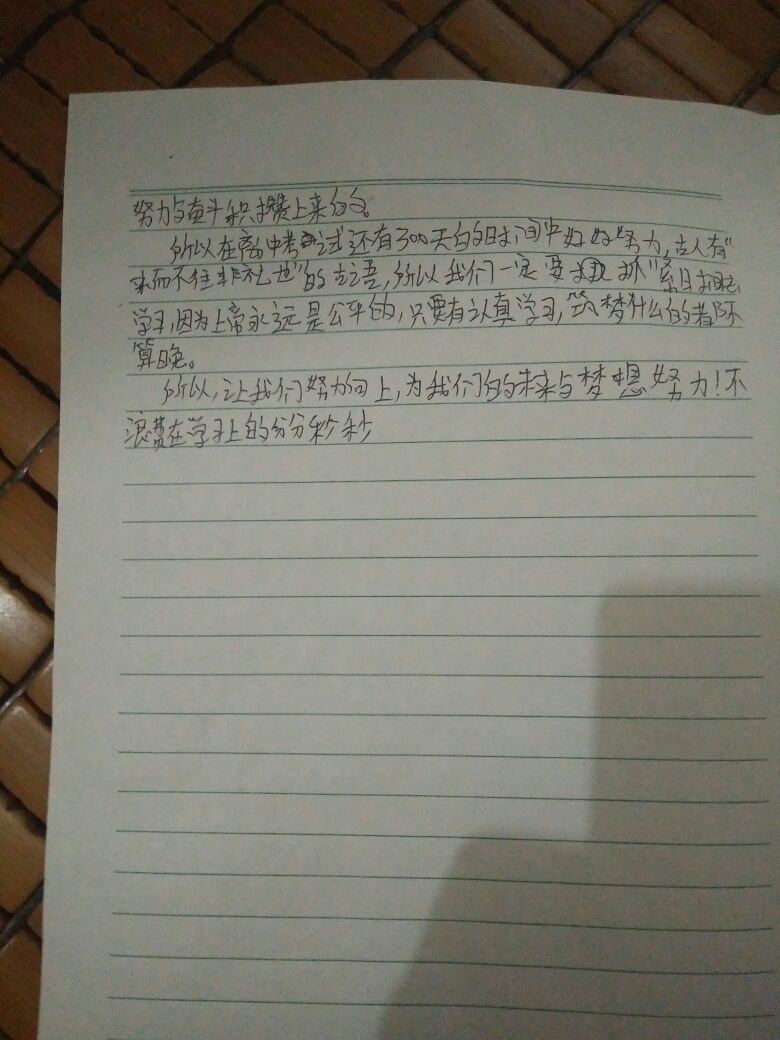 努力与奋斗积攒上来的。
所以在离中考考试还有300天的时间中好好努力,古人有"
来而不往非礼也"的古语,所以我们一定要抓紧时间
学习,因为上帝永远是公平的,只要有认真学习,筑梦什么的都不
算晚。
所以,让我们努力向上,为我们的未来与梦想努力!不
浪费在学习上的分分秒秒